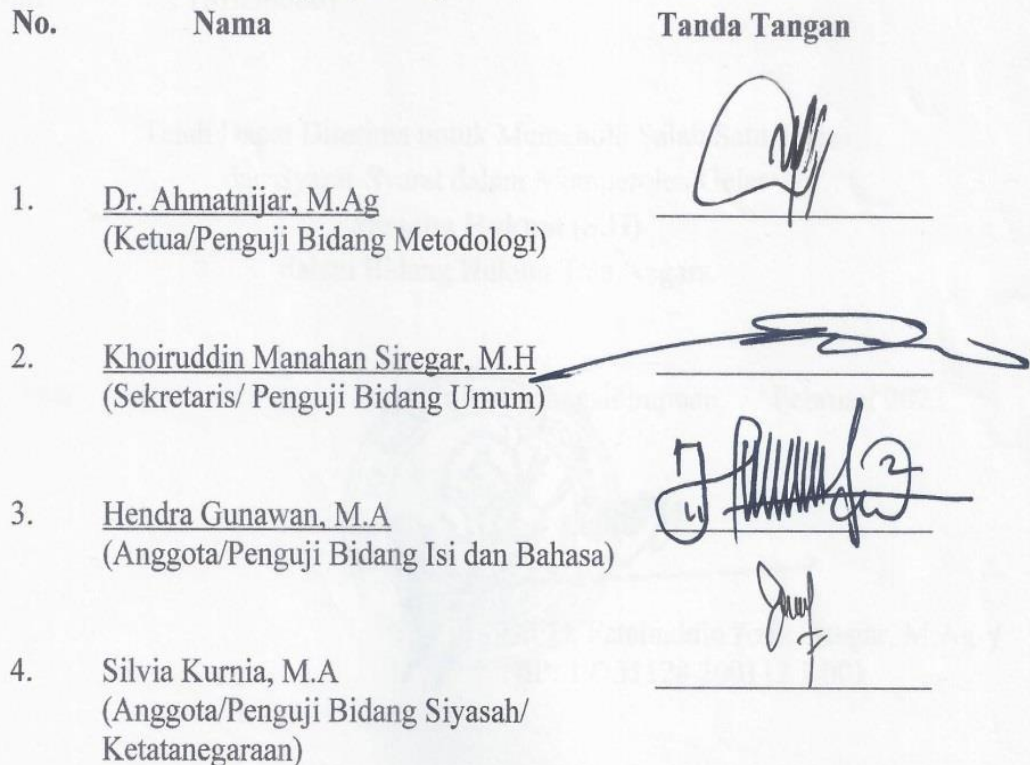 No. Nama Tanda Tangan
1. Dr. Ahmatnijar, M.Ag
(Ketua/Penguji Bidang Metodologi)
2. Khoiruddin Manahan Siregar, M.H
(Sekretaris/ Penguji Bidang Umum)
3. Hendra Gunawan, M.A
(Anggota/Penguji Bidang Isi dan Bahasa)
4. Silvia Kurnia, M.A
(Anggota/Penguji Bidang Siyasah/
Ketatanegaraan)